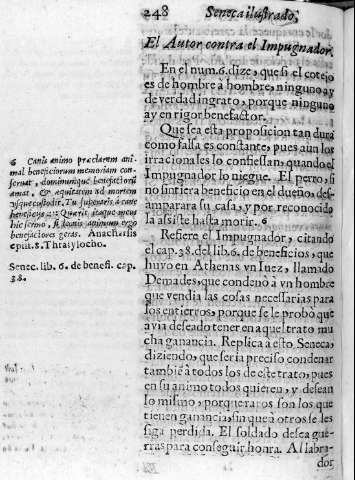 248 Seneca ilustrado,
El Autor contra el Impugnador.
En el num. 6. dize, que si el cotejo
es de hombre à hombre, ninguno ay
de verdad ingrato, porque ninguno
ay en rigor benefactor.
Que sea esta proposicion tan dura
como falsa es constante, pues aun los
irracionales lo confiessan, quando el
Impugnador lo niegue. El perro, si
no sintiera beneficio en el dueño, des-
amparara su casa, y por reconocido
la assiste hasta morir. 6
Refiere el Impugnador, citando
el cap. 38. del lib. 6. de beneficios, que
huvo en Athenas vn Iuez, llamado
Demades, que condenò à vn hombre
que vendia las cosas necessarias para
los entierros, porque se le probò que
avia deseado tener en aquel trato mu
cha ganancia. Replica à esto Seneca,
diziendo, que seria preciso condenar
tambiē à todos los de este trato, pues
en su animo todos quieren, y desean
lo mismo, porque raros son los que
tienen ganancia, sin que à otros se les
siga perdida. El soldado desea gue-
rras para conseguir honra. Al labra-
dor
6 Canis animo præclaram ani-
mal beneficiorum memoriam con-
servat, dominumque benefactorū
amat, & æquitatem ad mortem
vsque custodit. Tu superaris à cane
beneficijs: Quaris itaque meus
hic sermo, si canis animum ergo
benefactores geras. Anacharsis
epist. 8. Thrasylocho.
Senec. lib. 6. de benefi. cap.
38.